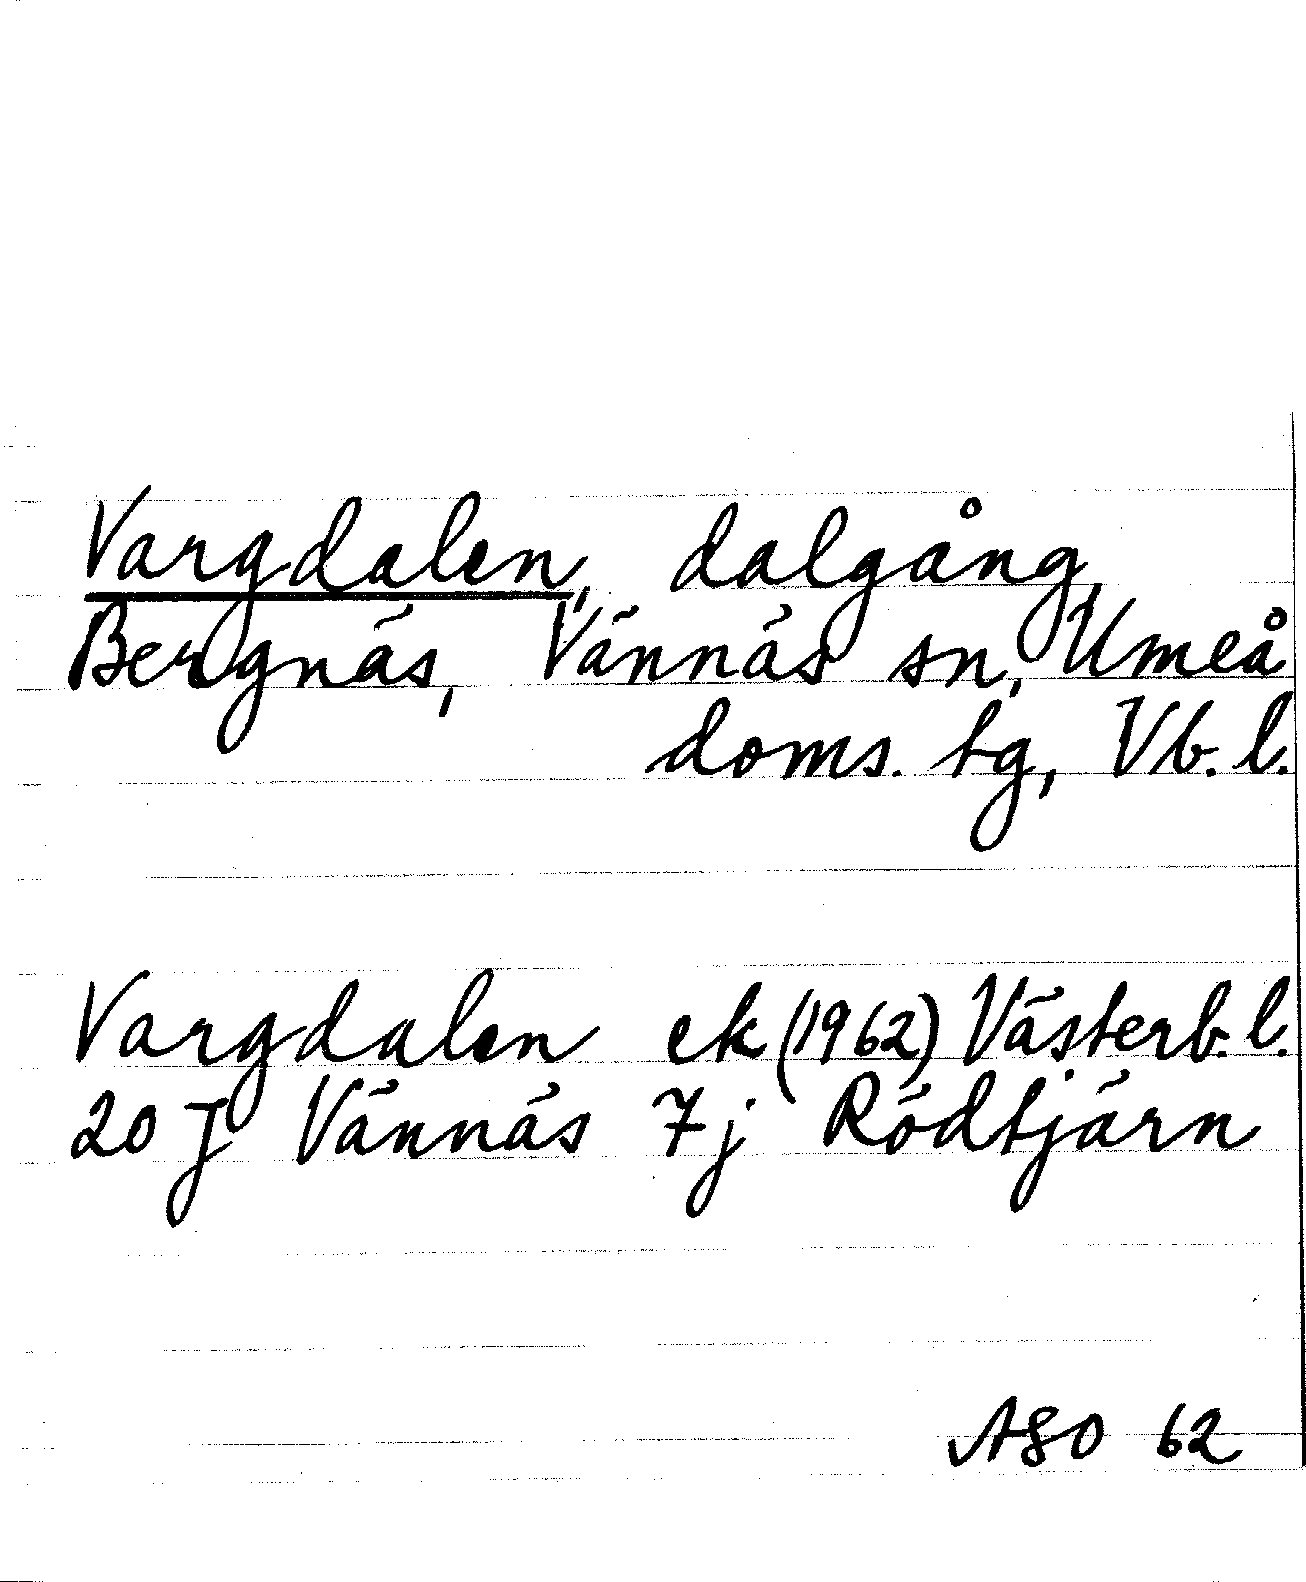 Vargdalen, dalgång,
Bergnäs, Vännäs sn, Umeå
doms. tg, Vb. l.
Vargdalen ek (1962) Västerb. l.
20 J Vännäs 7j Rödtjärn
ASO 62